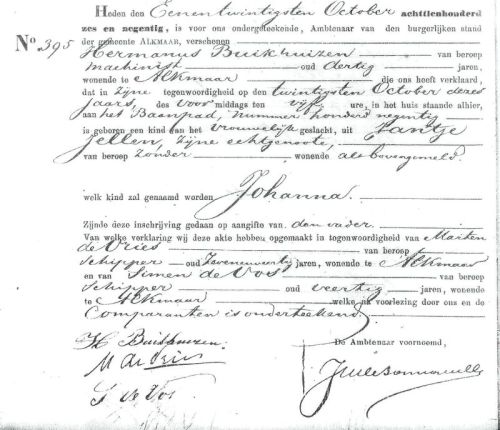 Heden den Eenentwintigsten October achttienhonderd
zes en negentig, is voor ons ondergeteekende, Ambtenaar van den burgerlijken stand
No. 395
der gemeente ALKMAAR, verschenen
Hermanus Buikhuizen van beroep
machinist oud dertig jaren,
wonende te Alkmaar die ons heeft verklaard,
dat in zijne tegenwoordigheid op den twintigsten October dezes
jaars, des voor middags ten vijf ure, in het huis staande alhier,
aan het Baanpad, nummer honderd negentig
is geboren een kind van het vrouwelijk geslacht, uit Jantje
Jellen, zijne echtgenoote,
van beroep zonder wonende als bovengemeld.
welk kind zal genaamd worden Johanna.
Zijnde deze inschrijving gedaan op aangifte van den vader.
Van welke verklaring wij deze akte hebben opgemaakt in tegenwoordigheid van Marten
de Vries van beroep
Schipper oud zevenenveertig jaren, wonende te Alkmaar
en van Simen de Vos van beroep
Schipper oud veertig jaren, wonende
te Alkmaar welke na voorlezing door ons en de
Comparanten is onderteekend.
H Buikhuizen
De Ambtenaar voornoemd,
M de Vries
S de Vos